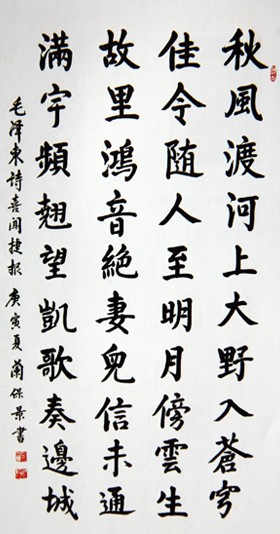 秋風渡河上大野入蒼穹
佳令随人至明月傍雲生
故里鴻音絶妻兒信未通
滿宇頻翹望凱歌奏邊城
毛泽東詩喜聞捷报 庚寅夏 蘭保景書